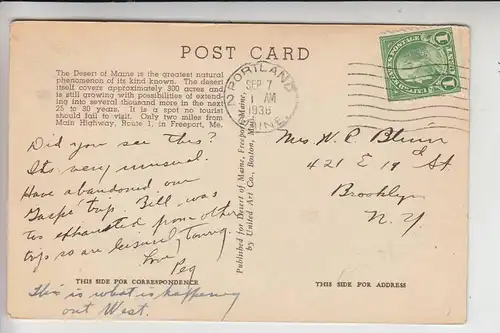 POST CARD
The Desert of Maine is the greatest natural
phenomenon of its kind known. The desert
itself covers approximately 300 acres and
is still growing with possibilities of extend-
ing into several thousand more in the next
25 to 30 years. It is a spot no tourist
should fail to visit. Only two miles from
Main Highway, Route 1, in Freeport, Me.
Did you see this?
Its very unusual.
Have abandoned our
Gaspé trip. Bill was
too exhausted from other
trip so are leisurely touring.
Love,
Peg
THIS SIDE FOR CORRESPONDENCE
This is what is happening
out West.
Published for Desert of Maine, Freeport, Maine,
by United Art Co., Boston, Mass.
PORTLAND
SEP 7
1 AM
1938
MAINE
1
1
Mrs W. P. Blunn
421 E 19 St.
Brooklyn
N. Y.
THIS SIDE FOR ADDRESS